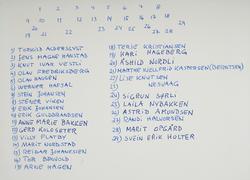 1 2 3 4 5 6 7 8
9 10 11 12 13 14 15 16 17 18
19 20 21 22 23 24 25 26
27 28
1) ALDERSLYST
2) JENS MAGNE HANSTAD
3) KNUT IVAR VESTLI
4) OLAV FREDRIKSBERG
5) OLAV HAUGEN
6) WERNER HAFSAL
7) STEIN JOHANSEN
8) STEINER VIKEN
9) ERIK JOHANSEN
10) ERIK GULBRANDSEN
11) ANNE MARIE BAKKEN
12) GERD KOLSETER
13) WILLY PLATBY
14) MARIT NORDSTAD
15) REIDAR JOHANESEN
16) TOR
17) ARNE HAGEN
18) TERJE KRISTIANSEN
19) KARI HAGEBERG
20) ÅSHILD NORDLI
21) MARTHE KASPERSEN (BERNTSEN)
22) LISE KNUTSEN
23) NESVAAG
24) SIGRUN SØRLI
25) LAILA NYBAKKEN
26) ASTRID AMUNDSEN
27) RANDI HALVORSEN
28) MARIT OPGÅRD
29) SVEIN ERIK HOLTER